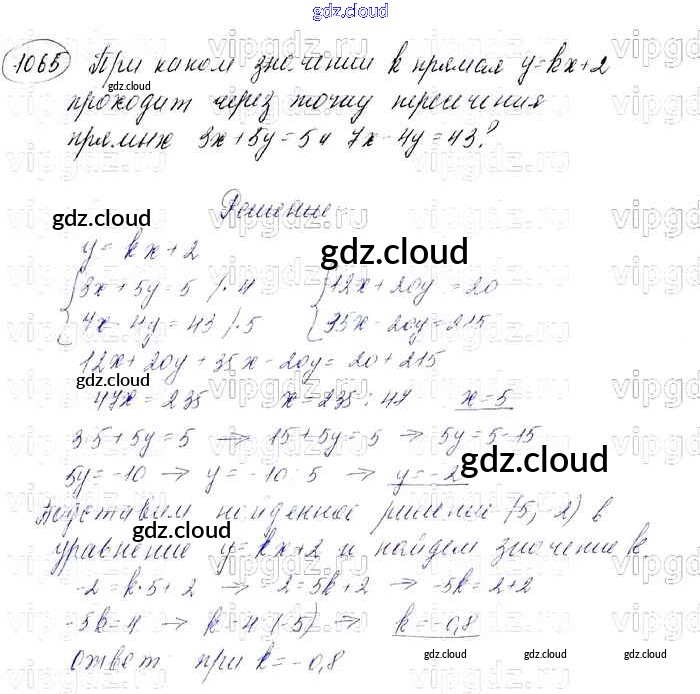 gdz.cloud
1065 При каком значении k прямая y=kx+2
gdz.cloud
проходит через точку пересечения
прямых 3x+5y=5 и 7x-4y=43?
gdz.cloud
Решение
gdz.cloud
y=kx+2
gdz.cloud
{3x+5y=5 /·4 {12x+20y=20
7x-4y=43 /·5 35x-20y=215
12x+20y+35x-20y=20+215
gdz.cloud
47x=235 x=235:47 x=5
gdz.cloud
3·5+5y=5 → 15+5y=5 → 5y=5-15
gdz.cloud
5y=-10 → y=-10:5 → y=-2
Подставим найденное решение (5;-2) в
gdz.cloud
уравнение y=kx+2 и найдем значение k
gdz.cloud
-2=k·5+2 → -2=5k+2 → -5k=2+2
-5k=4 → k=4:(-5) → k=-0,8
ответ: при k=-0,8
gdz.cloud gdz.cloud gdz.cloud